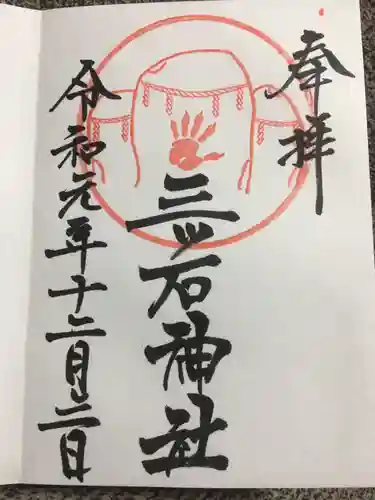 奉拝
三ツ石神社
令和元年十二月三日